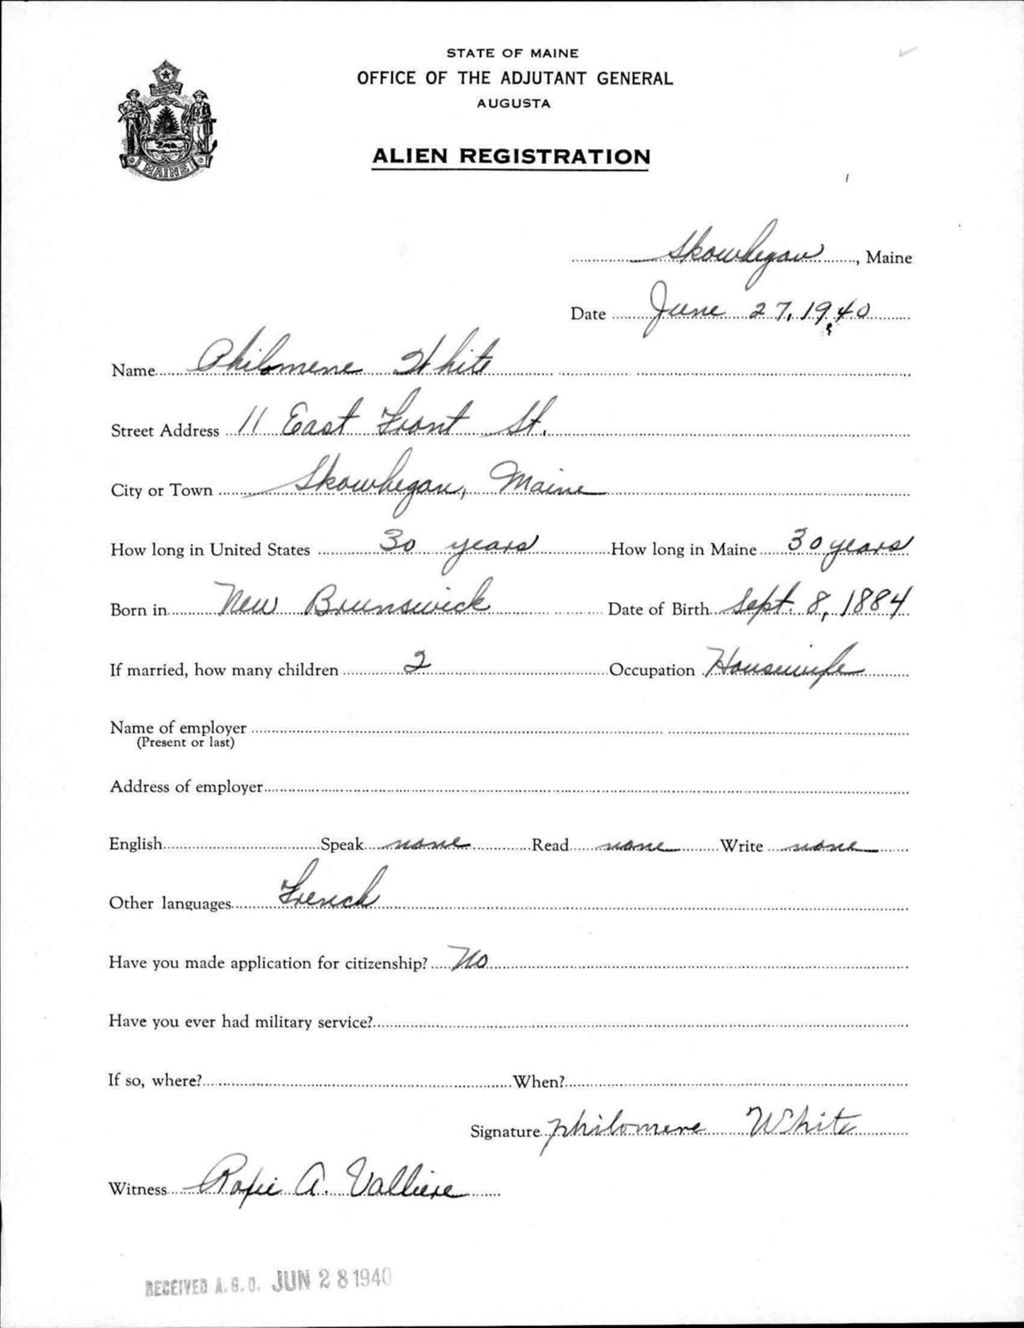 STATE OF MAINE
OFFICE OF THE ADJUTANT GENERAL
AUGUSTA
ALIEN REGISTRATION
MAINE
Skowhegan, Maine
Date June 27, 1940
Name Philomene White
Street Address 11 East Front St.
City or Town Skowhegan, Maine
How long in United States 30 years How long in Maine 30 years
Born in New Brunswick Date of Birth Sept. 8, 1884
If married, how many children 2 Occupation Housewife
Name of employer
(Present or last)
Address of employer
English Speak none Read none Write none
Other languages French
Have you made application for citizenship? No
Have you ever had military service?
If so, where? When?
Signature philomene White
Witness A. Valliere
RECEIVED A.G.O. JUN 28 1940